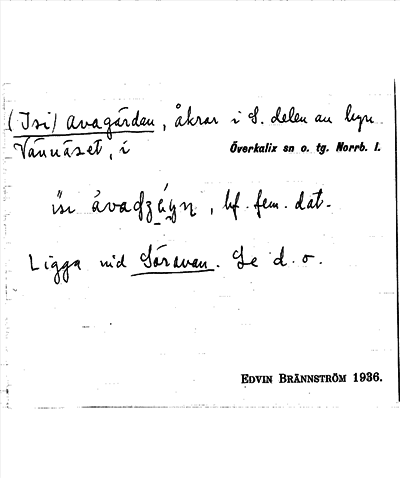 (Isi) avagården, åkrar i S. delen av byn
Vännäset, i Överkalix sn o. tg. Norrb. l.
isi ávadzǻyn, bf. fem. dat.
Ligga vid Söravan. Se d. o.
EDVIN BRÄNNSTRÖM 1936.